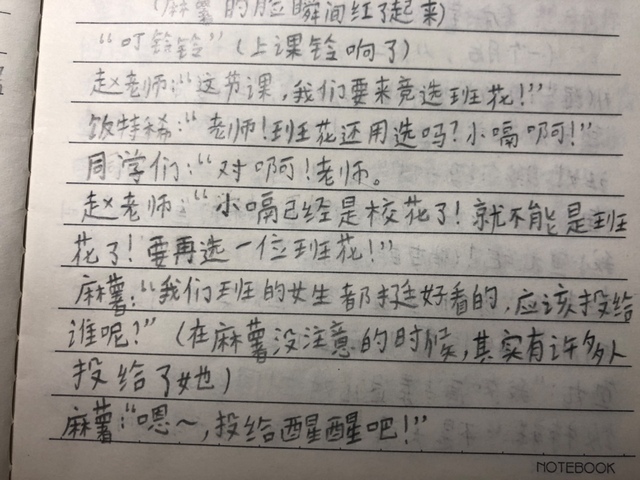 (麻薯的脸瞬间红了起来)
“叮铃铃”(上课铃响了)
赵老师:“这节课,我们要来竞选班花!”
饭特稀:“老师!班花还用选吗?小嗝啊!”
同学们:“对啊!老师。
赵老师:“小嗝已经是校花了!就不能是班
花了!要再选一位班花!”
麻薯:“我们班的女生都挺好看的,应该投给
谁呢?”(在麻薯没注意的时候,其实有许多人
投给了她)
麻薯:“嗯~,投给醒醒吧!”
NOTEBOOK